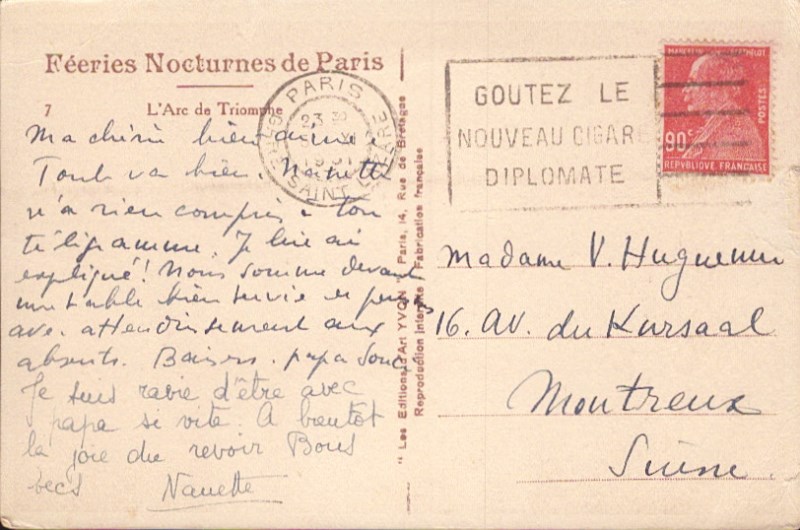 Féeries Nocturnes de Paris
7 L'Arc de Triomphe
Ma chérie bien aimée.
Tout va bien. Nanette
n'a rien compris à ton
télégramme. Je lui ai
expliqué! Nous somme devant
une table bien servie et
avec attendrissement aux
absents. Baisers. papa
Je suis ravie d'être avec
papa si vite. A bientôt
la joie du revoir Bons
becs Nanette
" Les Editions d'Art YVON " Paris, 14, Rue de Bretagne
Reproduction interdite Fabrication française
PARIS
GARE SAINT LAZARE
23
1931
GOUTEZ LE
NOUVEAU CIGARE
DIPLOMATE
BERTHELOT
90c
POSTES
REPUBLIQUE FRANÇAISE
Madame V. Huguenin
16. Av. du Kursaal
Montreux
Suisse.